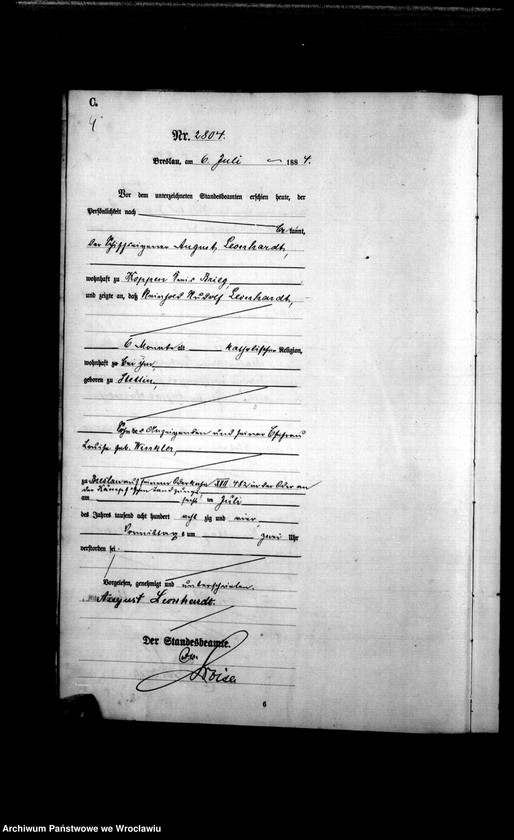 C.
4
Nr. 2804.
Breslau, am 6. Juli 1884.
Vor dem unterzeichneten Standesbeamten erschien heute, der
Persönlichkeit nach
be kannt,
der Schiffseigener August Leonhardt,
wohnhaft zu Koppen Kreis Brieg,
und zeigte an, daß Reinhold Rudolf Leonhardt,
6 Monate alt katholischer Religion,
wohnhaft zu bei ihm,
geboren zu Stettin,
Sohn des Anzeigenden und seiner Ehefrau
Louise geb. Winkler,
zu Breslau auf seinem Oderkahn XVII 482 in der Oder an
der
am sechs ten Juli
des Jahres tausend acht hundert acht zig und vier,
Vormittags um zwei Uhr
verstorben sei.
Vorgelesen, genehmigt und unterschrieben.
August Leonhardt.
Der Standesbeamte.
6
Archiwum Państwowe we Wrocławiu